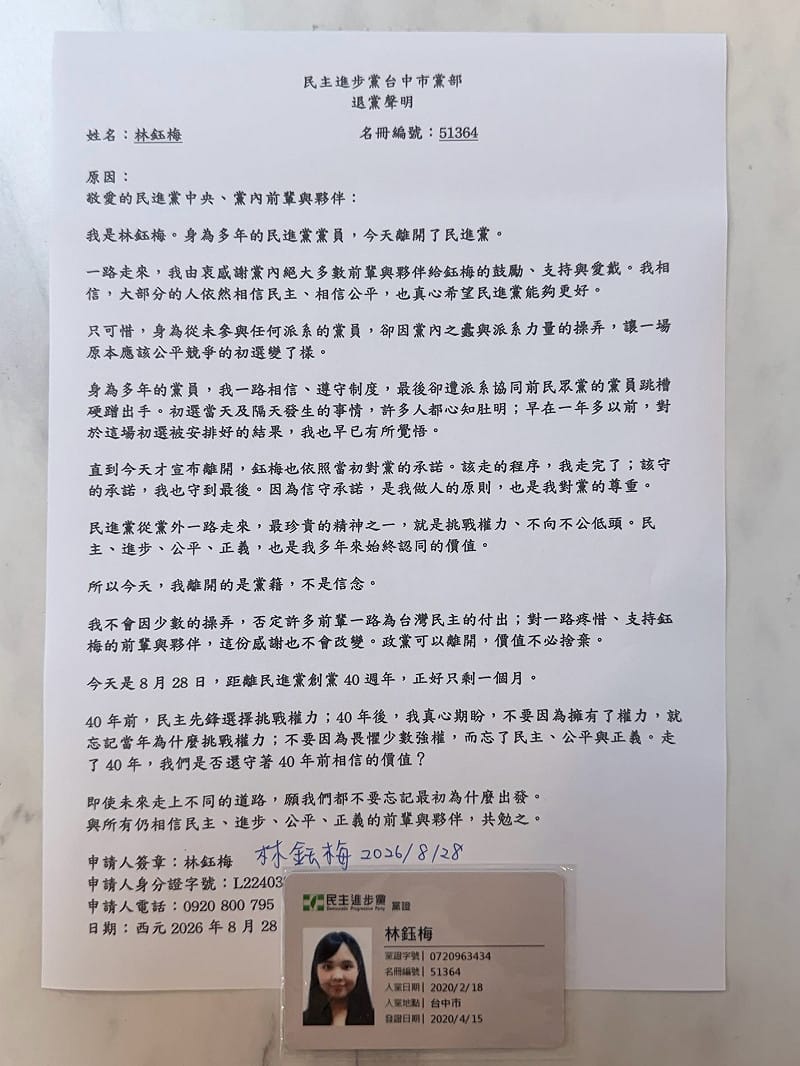 民主進步黨台中市黨部
退黨聲明
姓名：林鈺梅 名冊編號：51364
原因：
敬愛的民進黨中央、黨內前輩與夥伴：
我是林鈺梅。身為多年的民進黨黨員，今天離開了民進黨。
一路走來，我由衷感謝黨內絕大多數前輩與夥伴給鈺梅的鼓勵、支持與愛戴。我相
信，大部分的人依然相信民主、相信公平，也真心希望民進黨能夠更好。
只可惜，身為從未參與任何派系的黨員，卻因黨內之蠹與派系力量的操弄，讓一場
原本應該公平競爭的初選變了樣。
身為多年的黨員，我一路相信、遵守制度，最後卻遭派系協同前民眾黨的黨員跳槽
硬蹭出手。初選當天及隔天發生的事情，許多人都心知肚明；早在一年多以前，對
於這場初選被安排好的結果，我也早已有所覺悟。
直到今天才宣布離開，鈺梅也依照當初對黨的承諾。該走的程序，我走完了；該守
的承諾，我也守到最後。因為信守承諾，是我做人的原則，也是我對黨的尊重。
民進黨從黨外一路走來，最珍貴的精神之一，就是挑戰權力、不向不公低頭。民
主、進步、公平、正義，也是我多年來始終認同的價值。
所以今天，我離開的是黨籍，不是信念。
我不會因少數的操弄，否定許多前輩一路為台灣民主的付出；對一路疼惜、支持鈺
梅的前輩與夥伴，這份感謝也不會改變。政黨可以離開，價值不必捨棄。
今天是 8 月 28 日，距離民進黨創黨 40 週年，正好只剩一個月。
40 年前，民主先鋒選擇挑戰權力；40 年後，我真心期盼，不要因為擁有了權力，就
忘記當年為什麼挑戰權力；不要因為畏懼少數強權，而忘了民主、公平與正義。走
了 40 年，我們是否還守著 40 年前相信的價值？
即使未來走上不同的道路，願我們都不要忘記最初為什麼出發。
與所有仍相信民主、進步、公平、正義的前輩與夥伴，共勉之。
申請人簽章：林鈺梅 林鈺梅 2026/8/28
申請人身分證字號：L22403
申請人電話：0920 800 795
日期：西元 2026 年 8 月 28
民主進步黨 黨證
Democratic Progressive Party
林鈺梅
黨證字號 0720963434
名冊編號 51364
入黨日期 2020/2/18
入黨地點 台中市
發證日期 2020/4/15